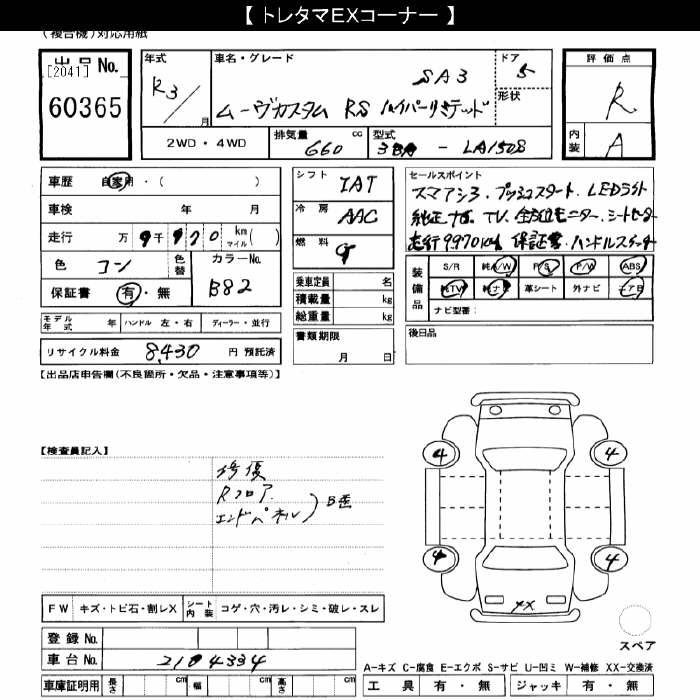 【 トレタマEXコーナー 】
(複合機)対応用紙
出品 No.
[2041]
60365
年式
R3/
月
車名・グレード
SA3
ムーヴカスタム RS ハイパーリミテッド
ドア
5
形状
評価点
R
内装
A
2WD・4WD
排気量
660
cc
型式
3BA - LA150S
車歴 自家用・( )
車検 年 月
走行 万 9千970 km マイル( )
色 コン
色替
カラーNo.
B82
保証書 有・無
シフト
IAT
冷房
AAC
燃料
G
乗車定員 名
積載量 kg
総重量 kg
セールスポイント
スマアシ3.プッシュスタート.LEDライト
純正ナビ.TV.全方位モニター.シートヒーター
走行9970km 保証書.ハンドルスイッチ
装備品
S/R 純A/W P/S P/W ABS
純TV 純ナビ 革シート 外ナビ エアB
ナビ型番:
モデル年式 年 ハンドル 左・右 ディーラー・並行
リサイクル料金 8,430 円 預託済
書類期限
月 日
後日品
【出品店申告欄(不良箇所・欠品・注意事項等)】
【検査員記入】
修復
Rフロア.
エンドパネル
4
4
4
4
XX
スペア
FW キズ・トビ石・割レX
シート内装 コゲ・穴・汚レ・シミ・破レ・スレ
登録 No.
車台 No. 2104334
車庫証明用 長さ cm 幅 cm 高さ cm
A-キズ C-腐食 E-エクボ S-サビ U-凹ミ W-補修 XX-交換済
工具 有・無 ジャッキ 有・無